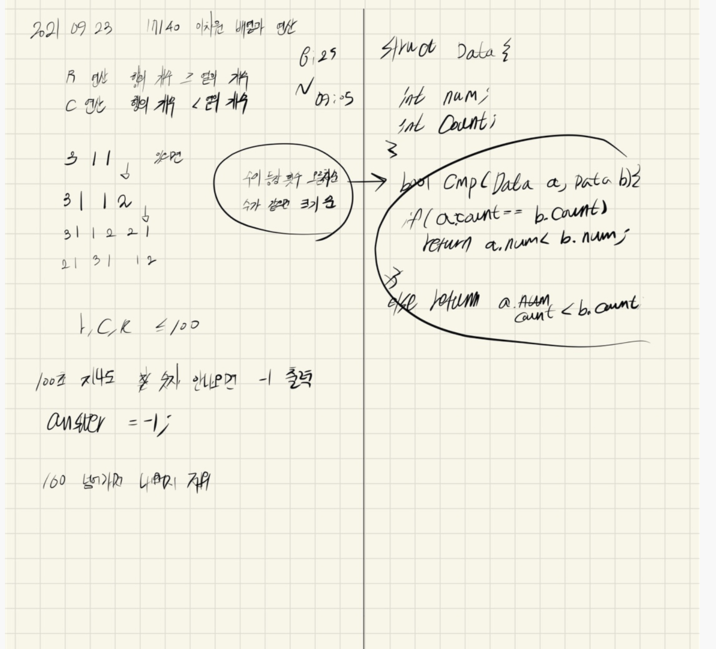 2021 09 23 17140 이차원 배열과 연산
8:25
~ 09:05
R 연산 행의 개수 ≥ 열의 개수
C 연산 행의 개수 < 열의 개수
3 1 1 있으면
3 1 1 2
3 1 1 2 2 1
2 1 3 1 1 2
수의 등장 횟수 커질수록
수가 같으면 크기 순
r, C, K ≤ 100
100초 지나도 숫자 안나오면 -1 출력
answer = -1;
100 넘어가면 나머지 지워
struct Data {
int num;
int Count;
}
bool Cmp(Data a, Data b){
if(a.count == b.Count)
return a.num < b.num;
}
else return a.count < b.count